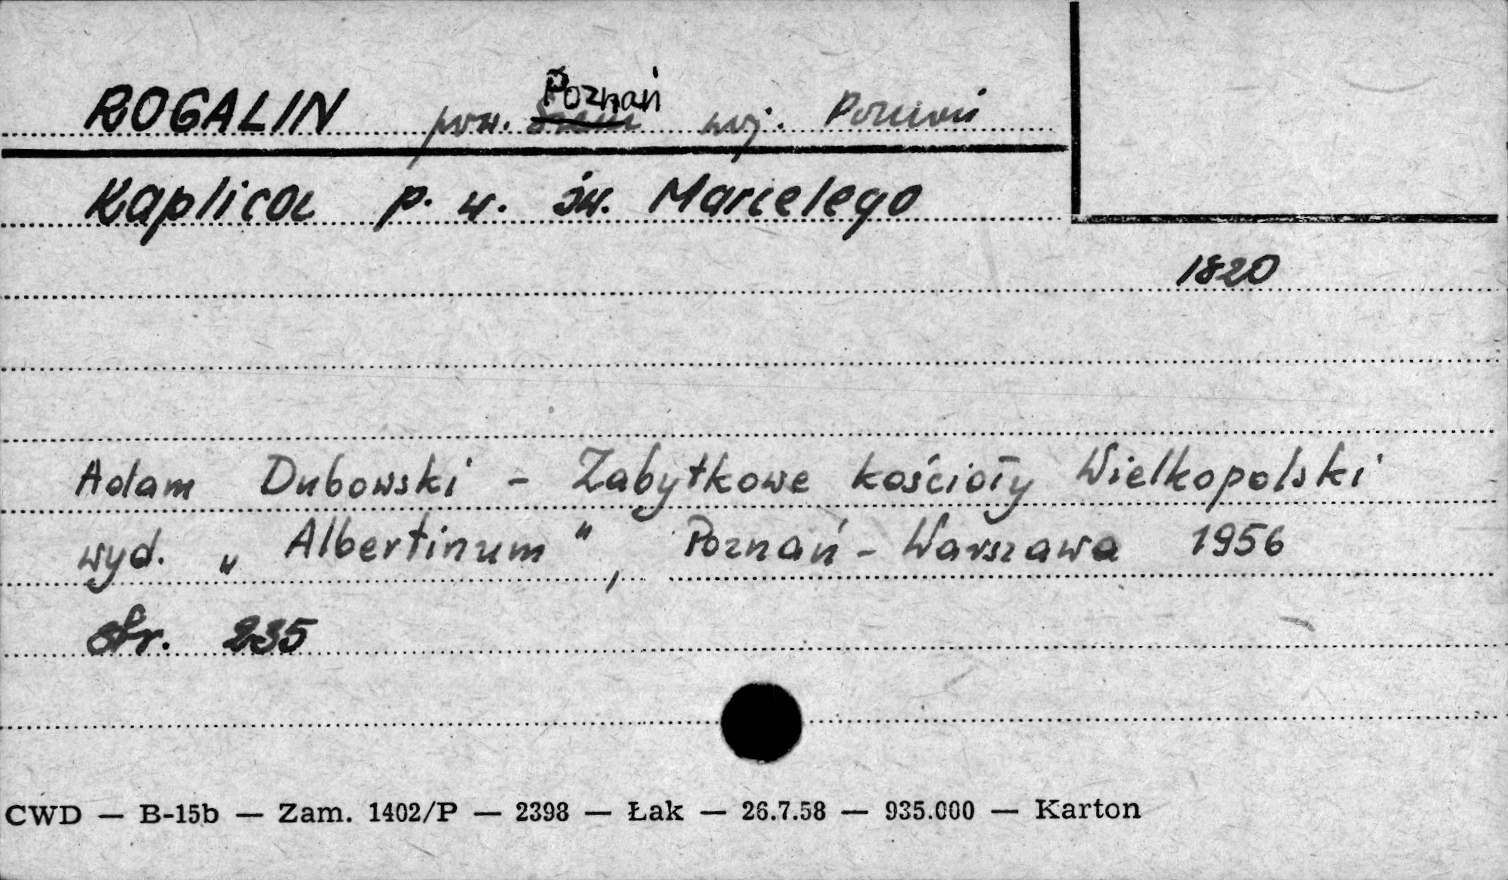 ROGALIN pow. Śrem Poznań woj. Poznań
Kaplica p. w. św. Marcelego
1820
Adam Dubowski - Zabytkowe kościoły Wielkopolski
wyd. „Albertinum", Poznań - Warszawa 1956
str. 235
CWD — B-15b — Zam. 1402/P — 2398 — Łak — 26.7.58 — 935.000 — Karton